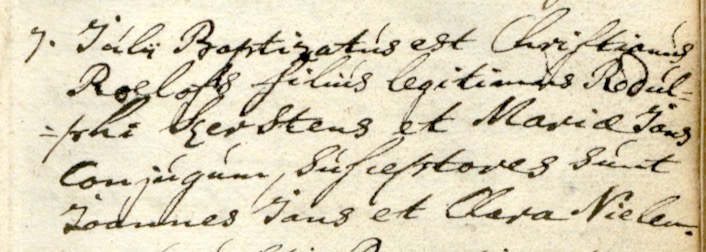 7. Julii Baptizatus est Christianus
Roelofs filius legitimus Rodul-
=phi Kerstens et Mariæ Jans
Conjugum, susceptores sunt
Joannes Jans et Clara Nielen.